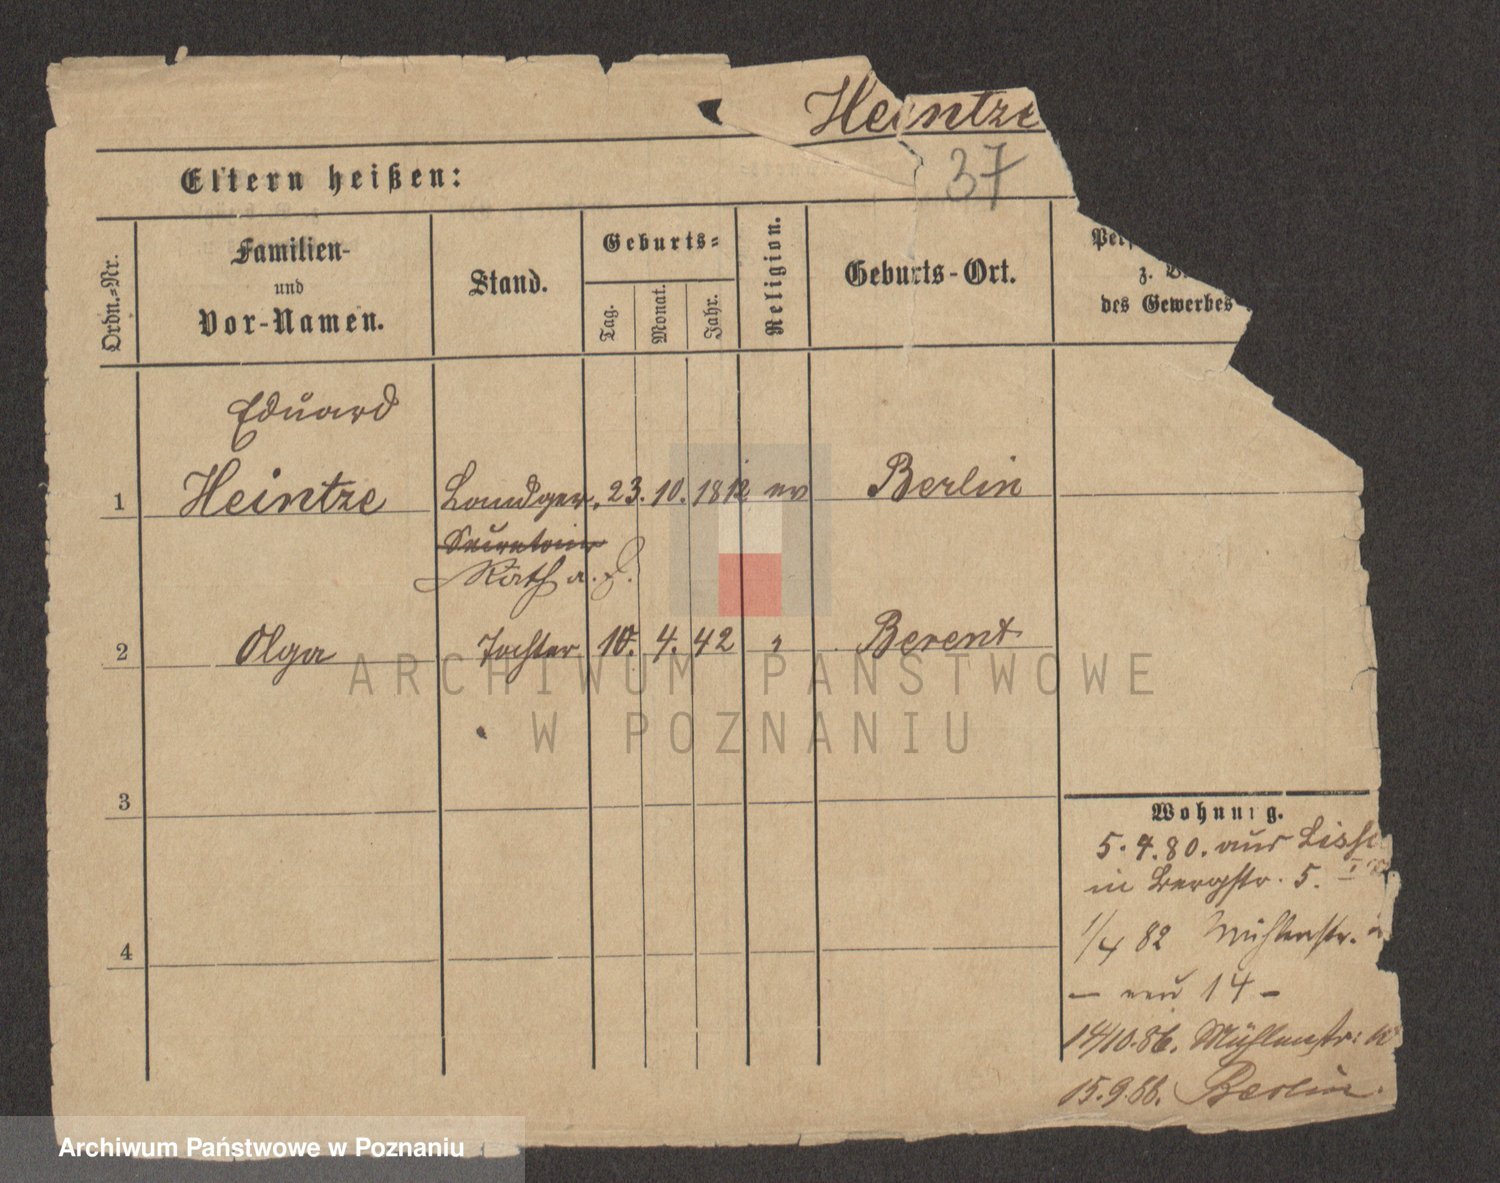 Heintze
37
Eltern heißen:
Ordn.-Nr.
Familien-
und
Vor-Namen.
Stand.
Geburts-
Tag.
Monat.
Jahr.
Religion.
Geburts-Ort.
Pers
z. B.
des Gewerbes
Eduard
1 Heintze Landger. 23. 10. 1812 ev Berlin
Secretair
Rath a. D.
2 Olga Tochter 10. 4. 42 " Berent
3
4
Wohnung.
5.4.80. aus Lissa
in Bergstr. 5.
1/4 82 Mühlenstr.
— neu 14 —
14/10.86. Mühlenstr:
15.9.88. Berlin.
ARCHIWUM PAŃSTWOWE
W POZNANIU
Archiwum Państwowe w Poznaniu